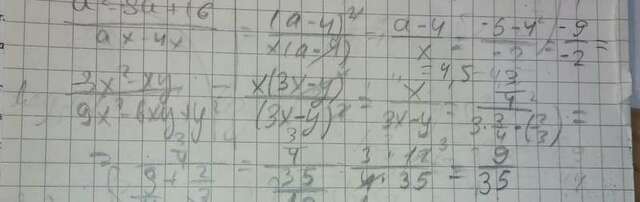 a² - 8a + 16 / ax - 4x = (a - 4)² / x(a - 4) = a - 4 / x = -5 - 4 / -2 = -9 / -2 =
= 4,5
3x² - xy / 9x² - 6xy + y² = x(3x - y) / (3x - y)² = x / 3x - y = 3/4 / 3 · 3/4 - (-2/3) =
= 3/4 / 9/4 + 2/3 = 3/4 / 35/12 = 3 · 12 / 4 · 35 = 9 / 35